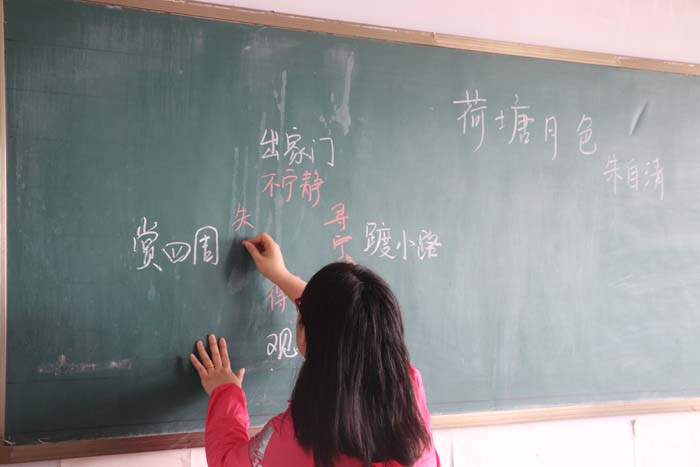 荷塘月色
朱自清
出家门
不宁静
赏四周
失
寻宁
踱小路
得
观